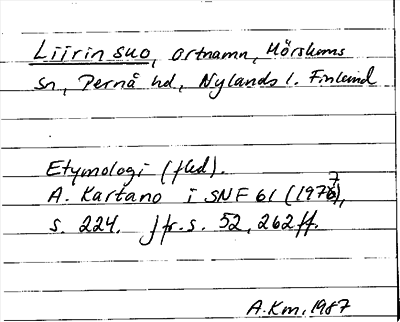 Liirin suo, ortnamn, Mörskoms
sn, Pernå hd, Nylands l. Finland
Etymologi (fled).
A. Kartano i SNF 61 (1977),
s. 224. Jfr. s. 52, 262 ff.
A.Km, 1987